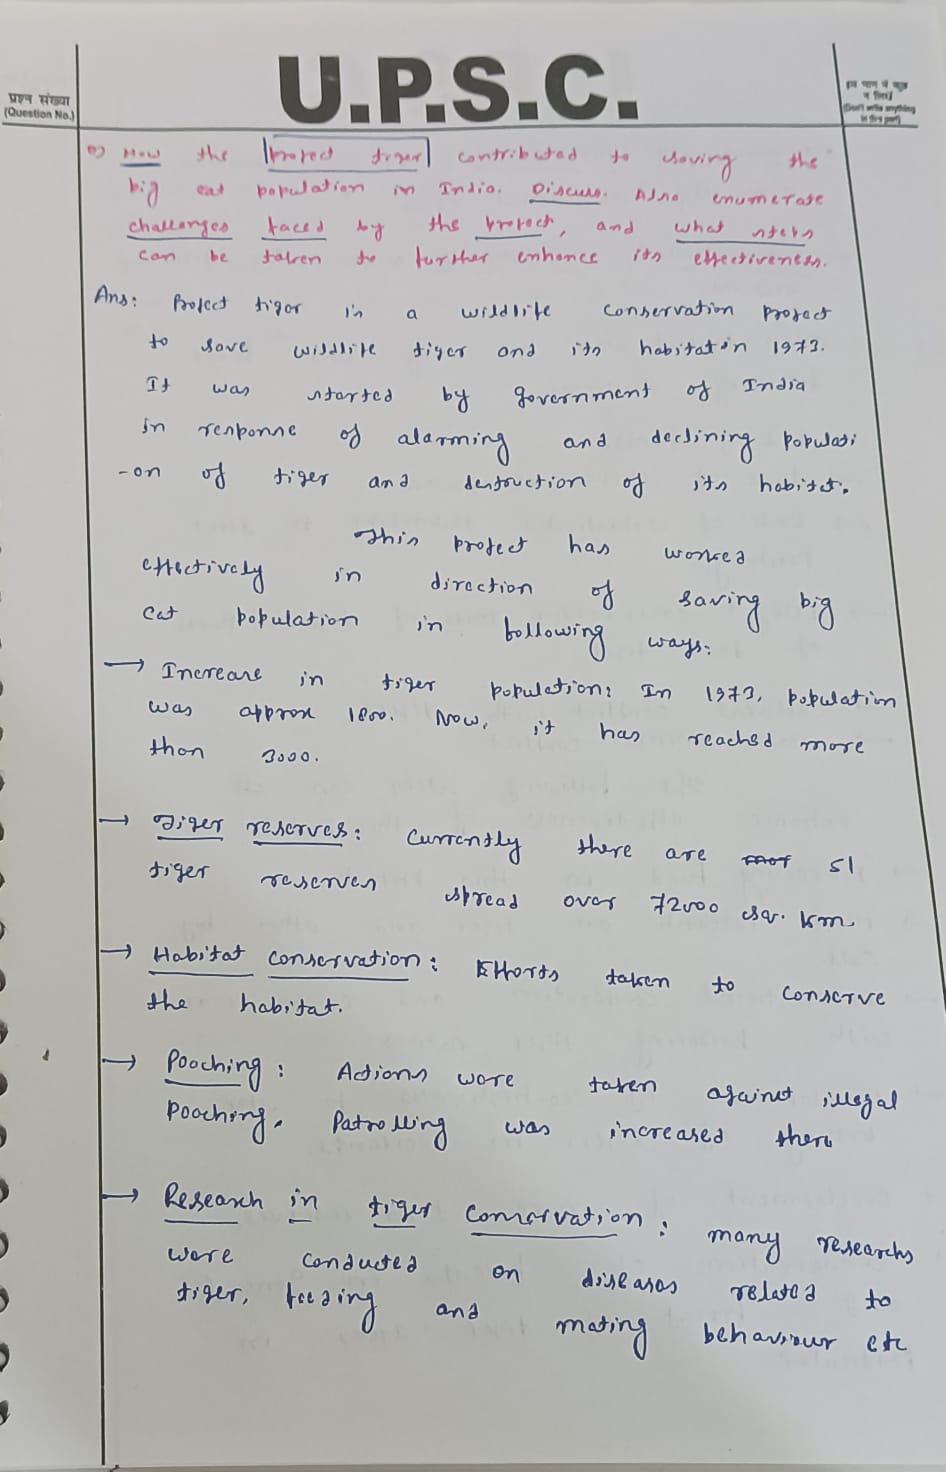 U.P.S.C.
प्रश्न संख्या
(Question No.)
(Don't write anything
in this part)
Q) How the project tiger contributed to saving the
big cat population in India. Discuss. Also enumerate
challenges faced by the project, and what steps
can be taken to further enhance its effectiveness.
Ans: Project tiger is a wildlife conservation project
to save wildlife tiger and its habitat in 1973.
It was started by government of India
in response of alarming and declining populati
-on of tiger and destruction of its habitat.
This project has worked
effectively in direction of saving big
cat population in following ways:
→ Increase in tiger population: In 1973, population
was approx 1800. Now, it has reached more
than 3000.
→ Tiger reserves: Currently there are 51
tiger reserves spread over 72000 sq. km.
→ Habitat conservation: Efforts taken to conserve
the habitat.
→ Pooching: Actions were taken against illegal
Pooching. Patrolling was increased there
→ Research in tiger conservation: many researchs
were conducted on diseases related to
tiger, feeding and mating behaviour etc